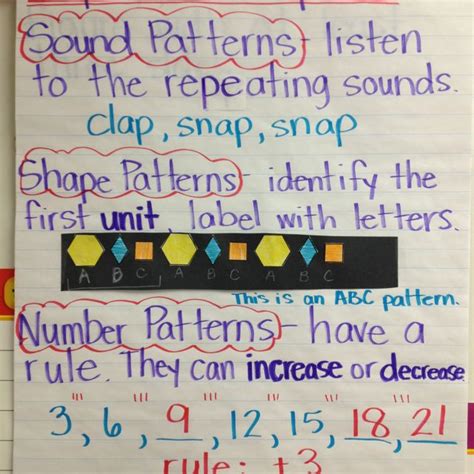 Sound Patterns- listen
to the repeating sounds.
clap, snap, snap
Shape Patterns- identify the
first unit, label with letters.
A B C A B C A B C
This is an ABC pattern.
Number Patterns- have a
rule. They can increase or decrease
3, 6, 9, 12, 15, 18, 21
rule: +3